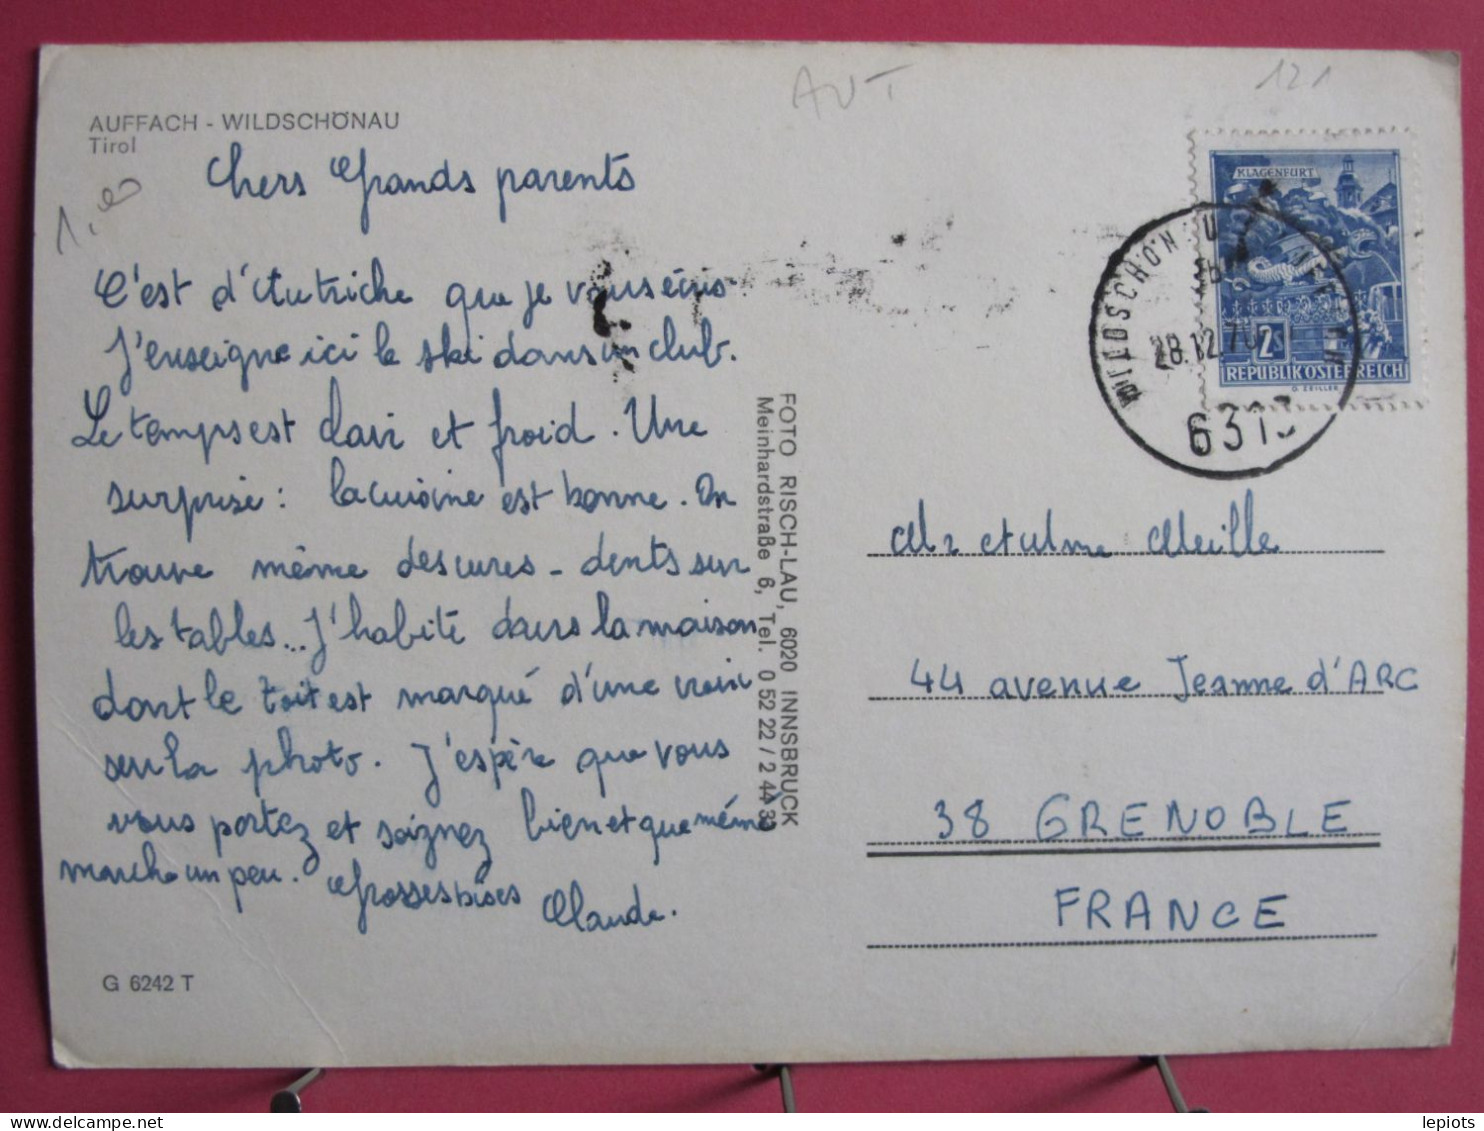 AUFFACH - WILDSCHÖNAU
Tirol
AUT
121
1,00
Chers Grands parents
C'est d'Autriche que je vous écris
J'enseigne ici le ski dans un club.
Le temps est clair et froid. Une
surprise : la cuisine est bonne. On
trouve même des cures-dents sur
les tables... J'habite dans la maison
dont le toit est marqué d'une croix
sur la photo. J'espère que vous
vous portez et soignez bien et que mémé
marche un peu. Grosses bises Claude.
G 6242 T
FOTO RISCH-LAU, 6020 INNSBRUCK
Meinhardstraße 6, Tel. 0 52 22 / 2 44 33
KLAGENFURT
2s
REPUBLIK ÖSTERREICH
G. ZEILLER
WILDSCHÖNAU
28.12.70
6313
Mr et Mme Meille
44 avenue Jeanne d'ARC
38 GRENOBLE
FRANCE
lepiots